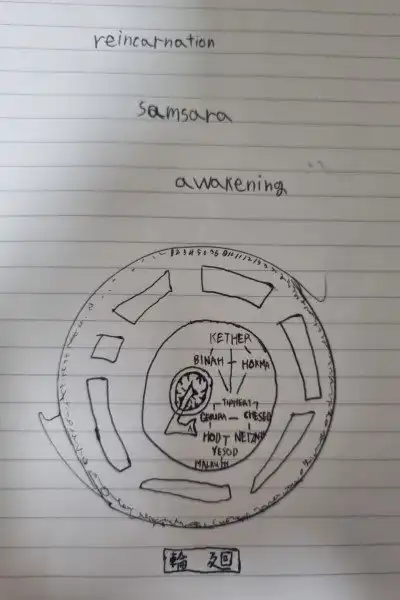 reincarnation
samsara
awakening
KETHER
BINAH HOKMA
CHESED
HOD NETZAH
YESOD
MALKUTH
輪 廻